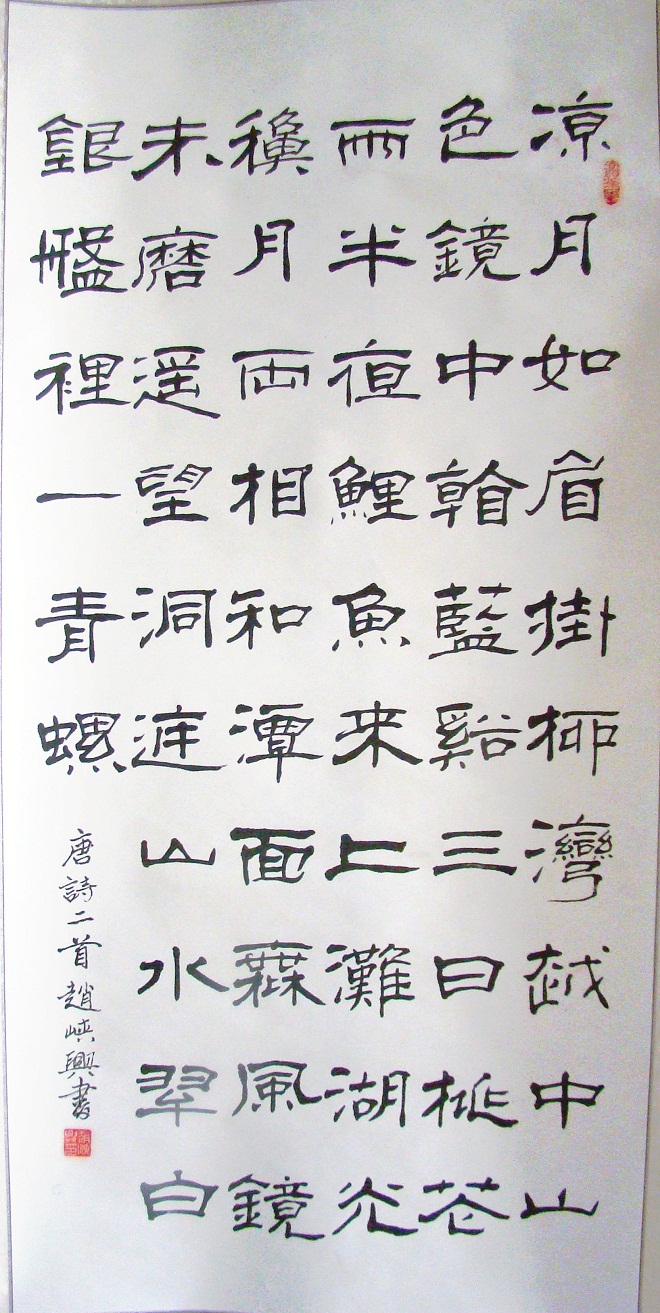 凉月如眉掛柳灣越中山
色鏡中看藍谿三日桃花
雨半夜鯉魚来上灘湖光
穐月兩相和潭面蕪風鏡
未磨遥望洞庭山水翠白
銀盤裡一青螺
唐詩二首趙峽興書